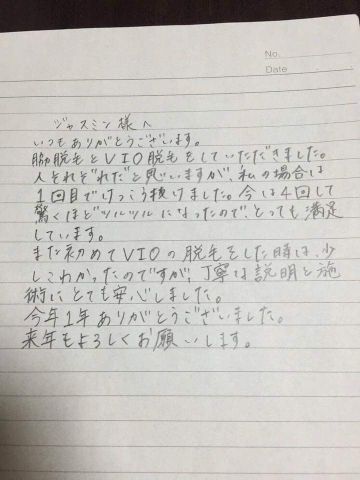 No.
Date
ジャスミン様へ
いつもありがとうございます。
脇脱毛とVIO脱毛をしていただきました。
人それぞれだと思いますが、私の場合は
1回目でけっこう抜けました。今は4回して
驚くほどツルツルになったので、とっても満足
しています。
また初めてVIOの脱毛をした時は、少
しこわかったのですが、丁寧な説明と施
術にとても安心しました。
今年1年ありがとうございました。
来年もよろしくお願いします。